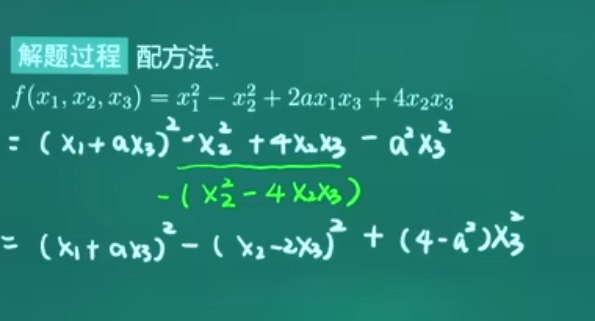 解题过程 配方法.
f(x₁, x₂, x₃) = x₁² − x₂² + 2ax₁x₃ + 4x₂x₃
= (x₁ + ax₃)² − x₂² + 4x₂x₃ − a²x₃²
−(x₂² − 4x₂x₃)
= (x₁ + ax₃)² − (x₂ − 2x₃)² + (4 − a²)x₃²